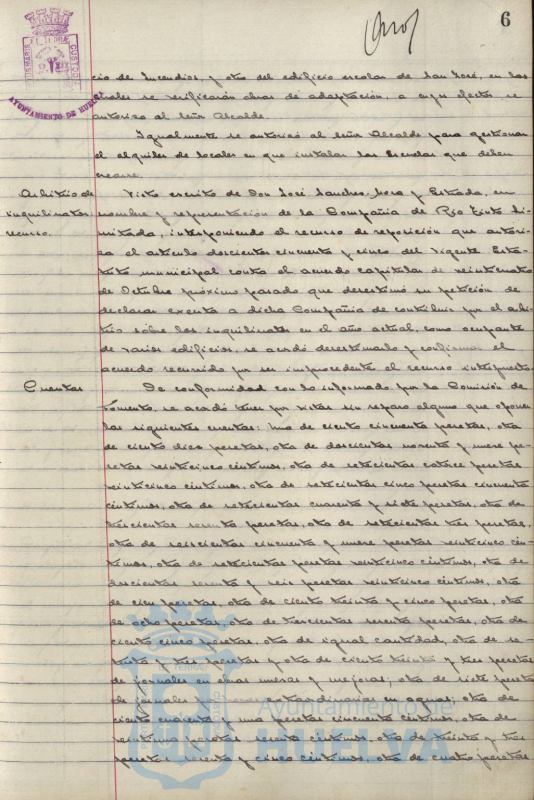 6
AYUNTAMIENTO DE HUELVA
cio de Incendios, y otro del edificio escolar de San José, en los
cuales se verificarán obras de adaptación, a cuyo efecto se
autoriza al Señor Alcalde.
Igualmente se autorizó al Señor Alcalde para gestionar
el alquiler de locales en que instalar las Escuelas que deben
crearse.
Arbitrio de
inquilinatos
recurso.
Visto escrito de Don José Sanchez Mora y Estrada, en
nombre y representación de la Compañia de Rio Tinto Li-
mitada, interponiendo el recurso de reposición que autori-
za el artículo doscientos cincuenta y cinco del vigente Esta-
tuto municipal contra el acuerdo capitular de veinticuatro
de Octubre próximo pasado que desestimó su petición de
declarar exenta a dicha Compañia de contribuir por el arbi-
trio sobre los inquilinatos en el año actual, como ocupante
de varios edificios, se acordó desestimarlo y confirmar el
acuerdo recurrido por ser improcedente el recurso interpuesto.
Cuentas
De conformidad con lo informado por la Comisión de
Fomento, se acordó tener por vistas sin reparo alguno que oponer
las siguientes cuentas: Una de ciento cincuenta pesetas, otra
de ciento diez pesetas, otra de doscientas noventa y nueve pe-
setas veinticinco céntimos, otra de setecientas catorce pesetas
veinticinco céntimos, otra de setecientas cinco pesetas cincuenta
céntimos, otra de setecientas cuarenta y siete pesetas, otra de
trescientas setenta pesetas, otra de setecientas tres pesetas,
otra de seiscientas cincuenta y nueve pesetas veinticinco cén-
timos, otra de setecientas pesetas veinticinco céntimos, otra de
doscientas y seis pesetas veinticinco céntimos, otra
de cien pesetas, otra de ciento treinta y cinco pesetas, otra
de ocho pesetas, otra de trescientas sesenta pesetas, otra de
ciento cinco pesetas, otra de igual cantidad, otra de se-
tenta y tres pesetas y otra de ciento treinta y tres pesetas
de jornales en obras nuevas y mejoras; otra de siete pesetas
de jornales extraordinarios en aguas; otra de
ciento cuarenta y una pesetas cincuenta céntimos, otra de
pesetas céntimos, otra de treinta y tres
pesetas y cinco céntimos, otra de cuatro pesetas
Ayuntamiento de
HUELVA